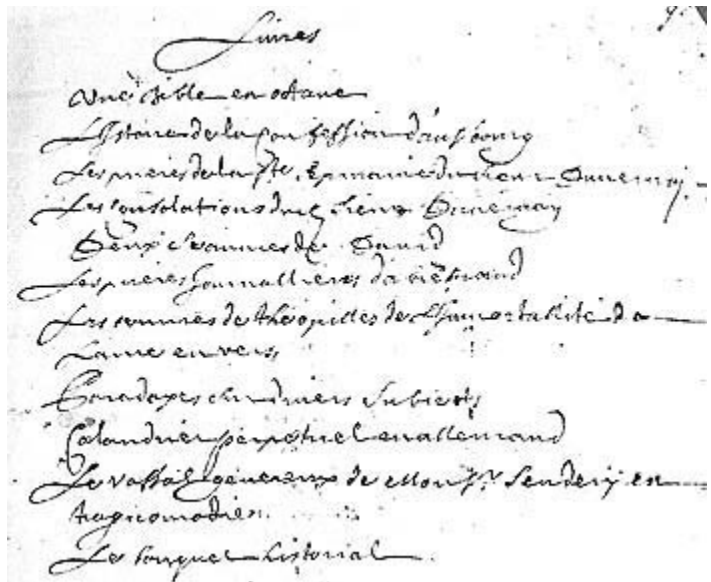 Liures
Une bible en octauo
L'Istoire de la Confession d'ausbourg
Les prieres de la Ste. Semaine du sieur Dumeny
Les Consolations du sieur Dumenay
Deux pseaumes de Dauid
Les prieres Journallieres de
Les œuures de théopilles de L'Inmortalité de
Lame en vers
Paradoxes sur diuers Subiects
Calandrier perpetuel en allemand
Le Vassal genereux de Monsr. Scudery en
tragicomedies
Le bouquet historial